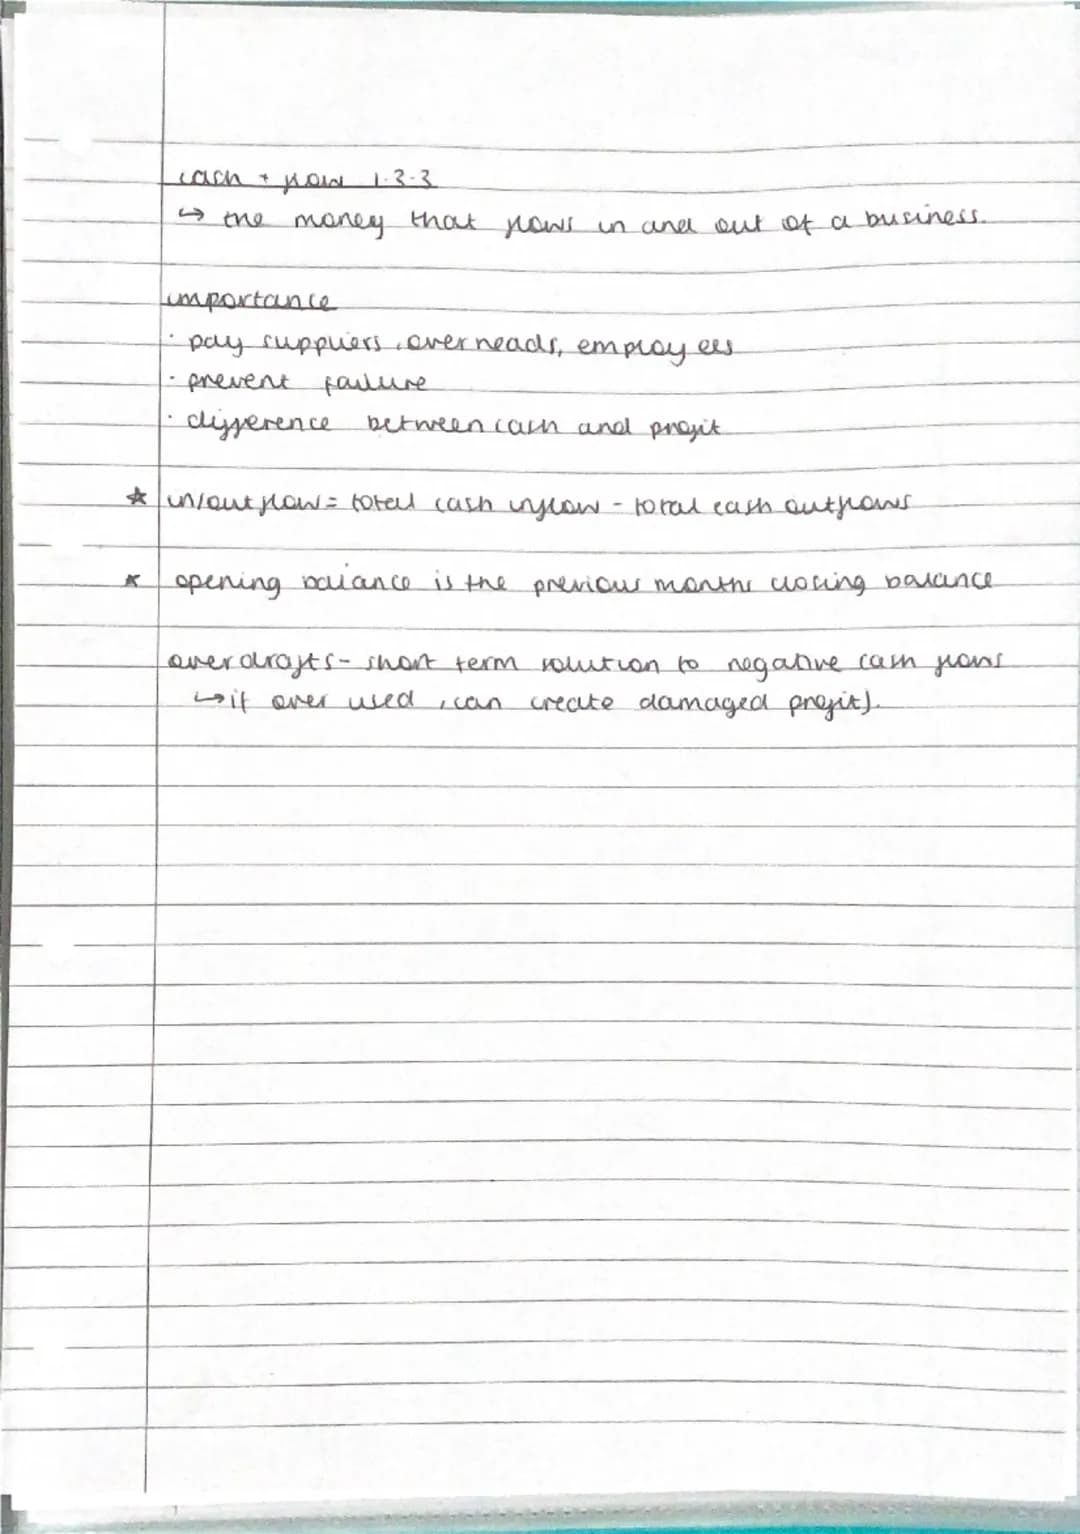 cash + flow 1.3.3
↳ the money that flows in and out of a business.
importance
· pay suppliers, overheads, employees
· prevent failure
· difference between cash and profit
☆ in/out flow = total cash inflow - total cash outflows
* opening balance is the previous months closing balance
overdrafts - short term solution to negative cash flows
↳ if over used, can create damaged profit).